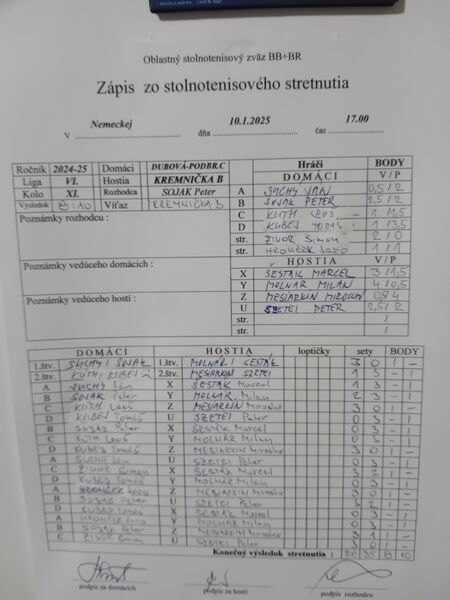 Oblastný stolnotenisový zväz BB+BR
Zápis zo stolnotenisového stretnutia
V Nemeckej dňa 10.1.2025 čas 17.00
Ročník 2024-25 Domáci DUBOVÁ-PODBR.C Hráči BODY
Liga VI. Hostia KREMNIČKA B DOMÁCI V / P
Kolo XI. Rozhodca SOJAK Peter A SUCHY JÁN 0,5 / 2
Výsledok 8:10 Víťaz KREMNIČKA B B SOJAK PETER 2,5 / 2
Poznámky rozhodcu : C KUTH LEOŠ
D KUBEJ TOMÁŠ
str. ŽIVOR Šimon 2 / 0
str. 1 / 1
Poznámky vedúceho domácich : HOSTIA V / P
X ŠESTÁK MARCEL 3 / 1,5
Y MOLNÁR MILAN 4 / 0,5
Poznámky vedúceho hostí : Z MESIARKIN MIROSLAV
U SZETEI PETER 2,5 / 2
str. /
str. /
DOMÁCI HOSTIA loptičky sety BODY
1.štv. SUCHÝ / SOJAK 1.štv. MOLNÁR / ŠESTÁK 3 0 1 -
2.štv. KUTH, KUBEJ 2.štv. MESIARKIN SZETEI 1 3 - 1
A SUCHÝ Ján X ŠESTÁK Marcel 1 3 - 1
B SOJAK Peter Y MOLNÁR Milan 2 3 - 1
C KUTH Leoš Z MESIARKIN Miroslav 3 0 1 -
D KUBEJ Tomáš U SZETEI Peter 0 3 - 1
B SOJAK Peter X ŠESTÁK Marcel
C KUTH Leoš Y MOLNÁR Milan 0 3 - 1
D KUBEJ Tomáš Z MESIARKIN Miroslav 3 0 1 -
A SUCHÝ Ján U SZETEI Peter 0 3 - 1
C ŽIVOR Šimon X ŠESTÁK Marcel 3 2 1 -
D KUBEJ Tomáš Y MOLNÁR Milan 0 3 - 1
A Z MESIARKIN Miroslav
B SOJAK Peter U SZETEI Peter 3 2 1 -
D KUBEJ Tomáš X ŠESTÁK Marcel 0 3 - 1
A Y MOLNÁR Milan 0 3 - 1
B SOJAK Peter Z MESIARKIN Miroslav
C ŽIVOR Šimon U SZETEI Peter 3 0 1 -
Konečný výsledok stretnutia : 8 10
podpis za domácich podpis za hostí podpis rozhodcu